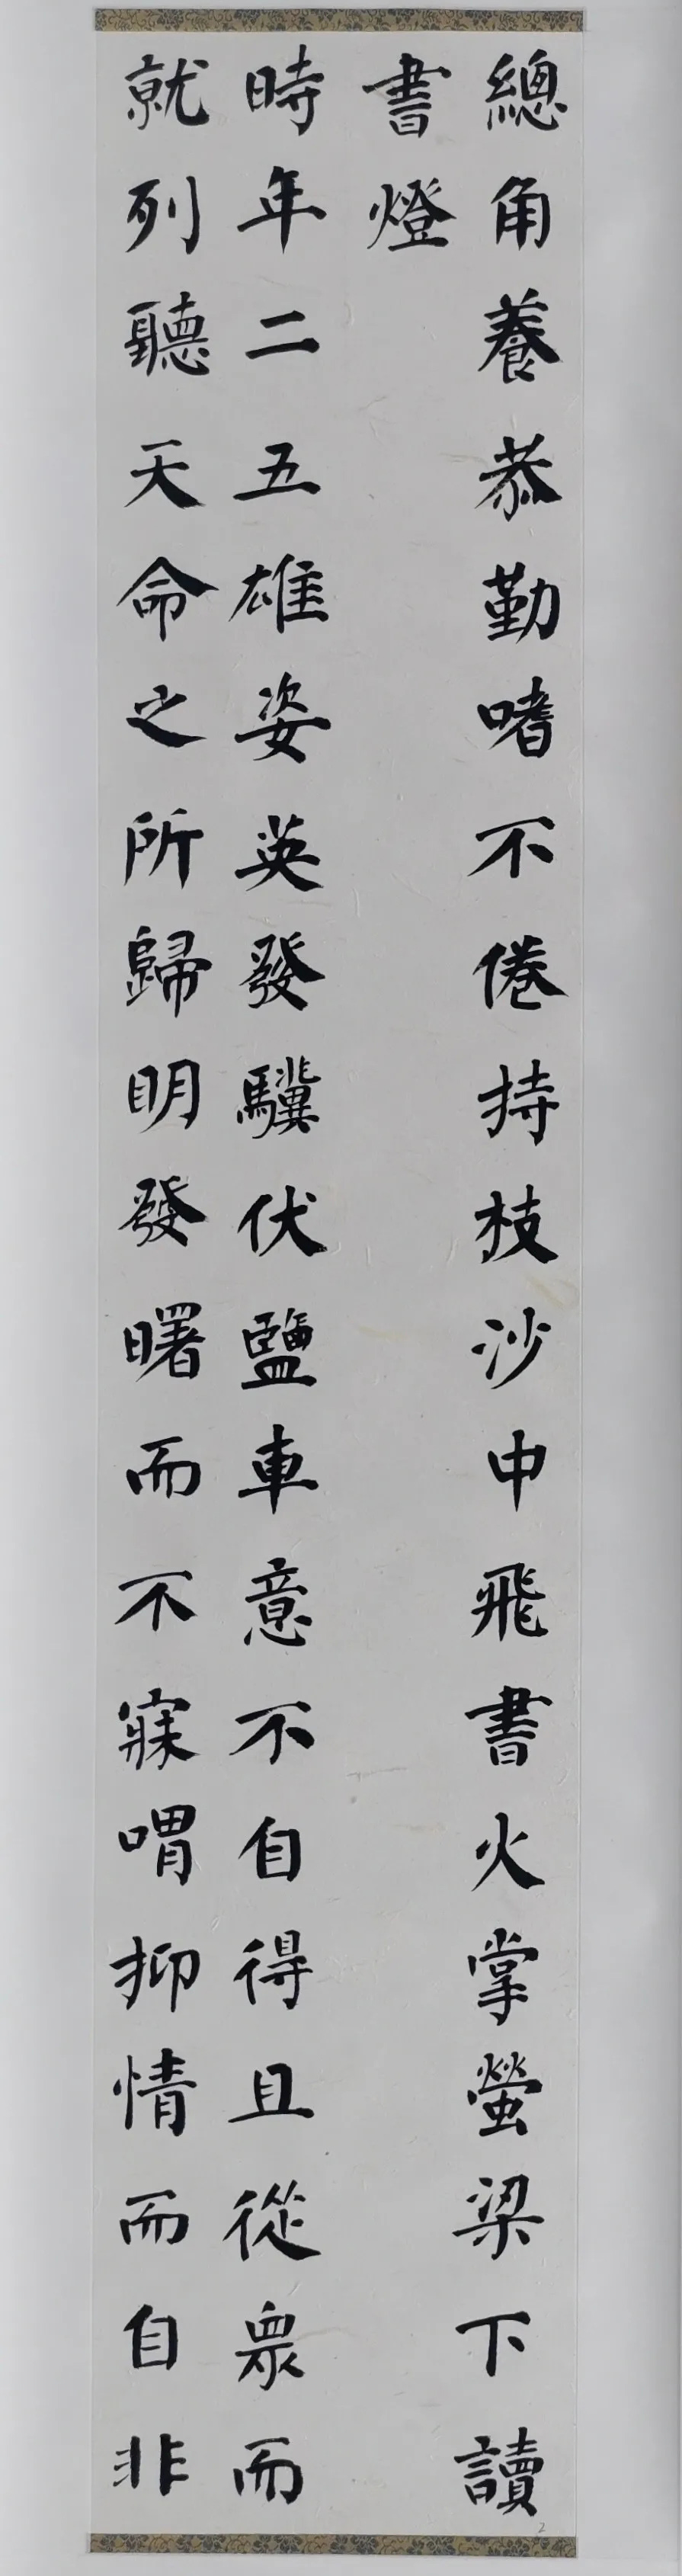 總角養恭勤嗜不倦持枝沙中飛書火掌螢梁下讀
書燈
時年二五雄姿英發驥伏鹽車意不自得且從眾而
就列聽天命之所歸明發曙而不寐喟抑情而自非
2